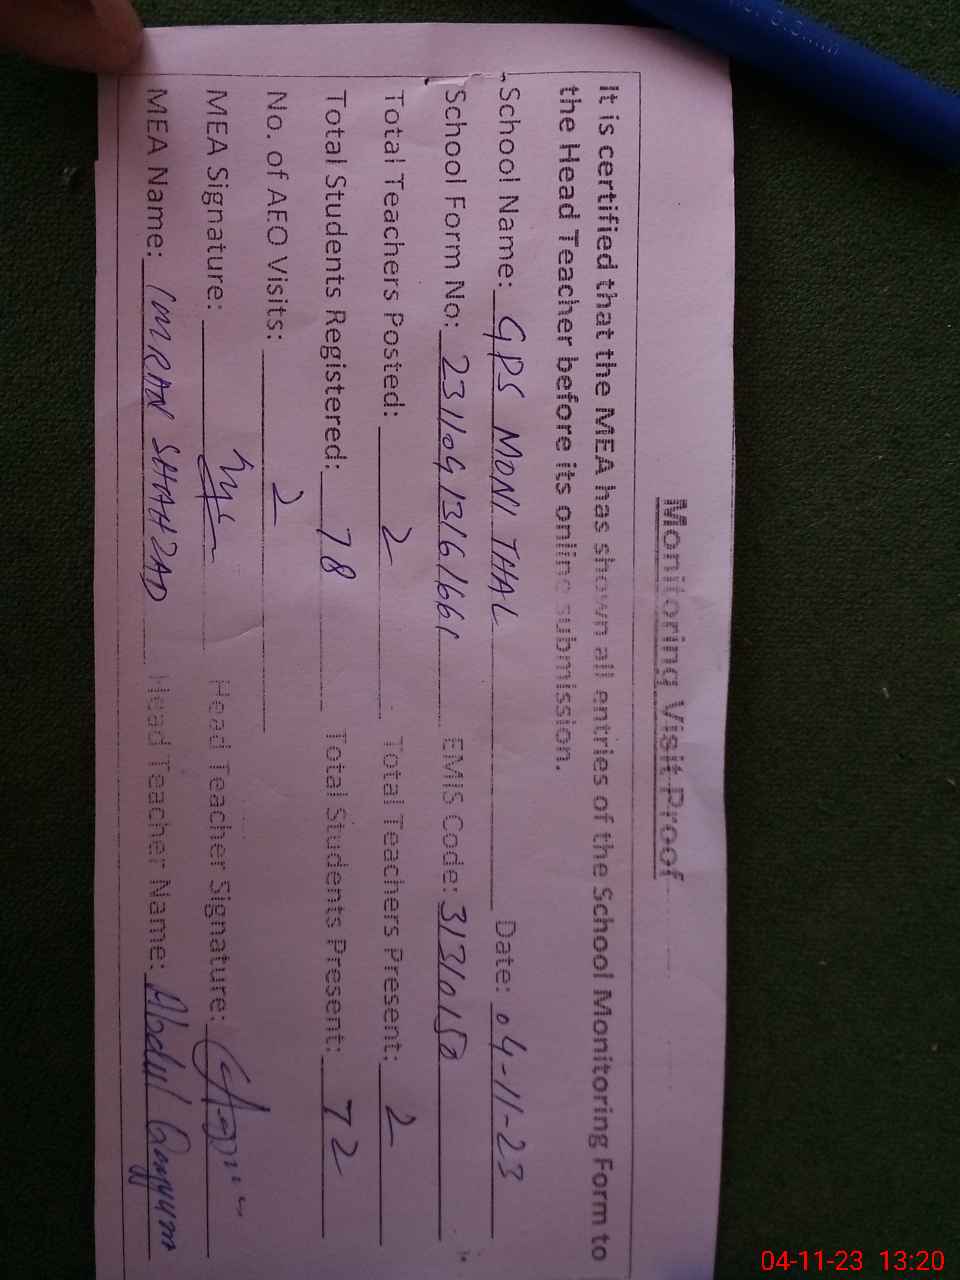 Monitoring Visit Proof
It is certified that the MEA has shown all entries of the School Monitoring Form to
the Head Teacher before its online submission.
School Name: GPS MONI THAL Date: 04-11-23
School Form No: 23110413161661 EMIS Code: 31310150
Total Teachers Posted: 2 Total Teachers Present: 2
Total Students Registered: 78 Total Students Present: 72
No. of AEO Visits: 2
MEA Signature: Head Teacher Signature:
MEA Name: IMRAN SHAHZAD Head Teacher Name: Abdul Qayyum
04-11-23 13:20